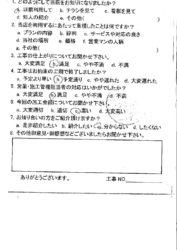 1. どのようにして当店をお知りになりましたか?
a. 以前利用して b. チラシを見て c. 看板を見て
d. 知人の紹介 e. その他(
2. 当店を利用するにあたって重視したことは何ですか?
a. プランの内容 b. 評判 c. サービスや対応の良さ
d. 当社の場所 e. 価格 f. 営業マンの人柄
g. その他(
3. 工事の仕上がりについてお聞かせ下さい。
a. 大変満足 b. 満足 c. やや不満 d. 不満
4. 工事はお約束の工期で終了しましたか?
a. 予定より早い b. 予定通り c. やや遅れた d. 大変遅れた
5. 営業・施工管理担当者の対応はいかがでしたか?
a. 大変満足 b. 満足 c. やや不満 d. 不満
6. 今回の施工金額についてお聞かせ下さい。
a. 大変安い b. 適切 c. 高い d. 大変高い
7. お知り合いの方をご紹介頂けますか?
a. 是非紹介したい b. 紹介したい c. 分からない d. したくない
8. その他御意見・御感想などございましたらお聞かせ下さい。
ありがとうございます。 工事NO.